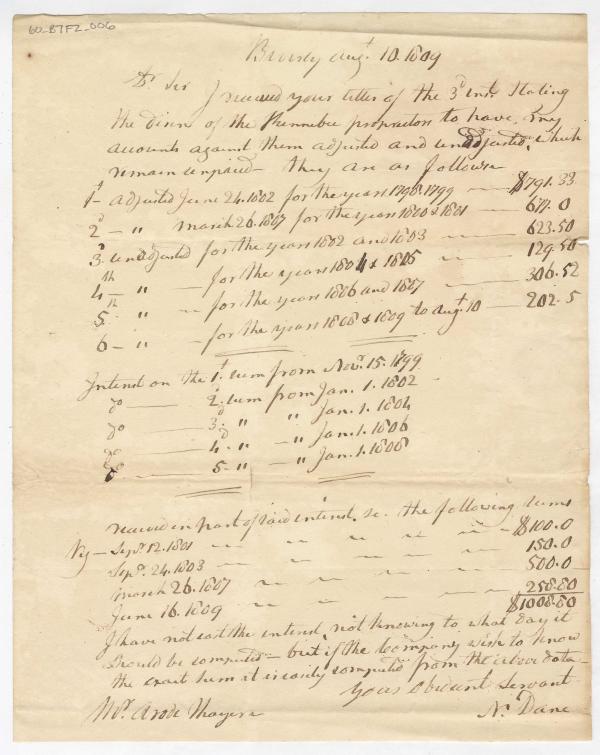 60_B7F2_006
Beverly Augt. 10. 1809
Dr. Sir I received your letter of the 3d inst. stating
the desire of the Kennebec proprietors to have, my
accounts against them adjusted and unadjusted, which
remain unpaid — they are as follows
1st — adjusted June 24. 1802 for the years 1798 & 1799 — $791.33
2d — " march 26. 1807 for the years 1800 & 1801 — 677.0
3d. unadjusted for the years 1802 and 1803 — 623.50
4th — " — for the years 1804 & 1805 " — 129.50
5th " — for the years 1806 and 1807 — 306.52
6 — " — for the years 1808 & 1809 to augt. 10 — 202.5
Interest on the 1st. sum from Novr. 15. 1799
Do — 2d. sum from Jan. 1. 1802
Do — 3d. " " Jan. 1. 1804
Do — 4. " — " Jan. 1. 1806
Do — 5. " — " Jan. 1. 1808
received in part of said interest, &c. the following sums
Viz — Sepr. 12. 1801 — $100.0
Sepr. 24. 1803 — 150.0
march 26. 1807 — 500.0
June 16. 1809 — 258.80
$1008.80
I have not cast the interest, not knowing to what day it
should be computed — but if the Company wish to know
the exact sum it is easily computed from the above data —
Your Obedient Servant
Mr. Arodi Thayer N. Dane